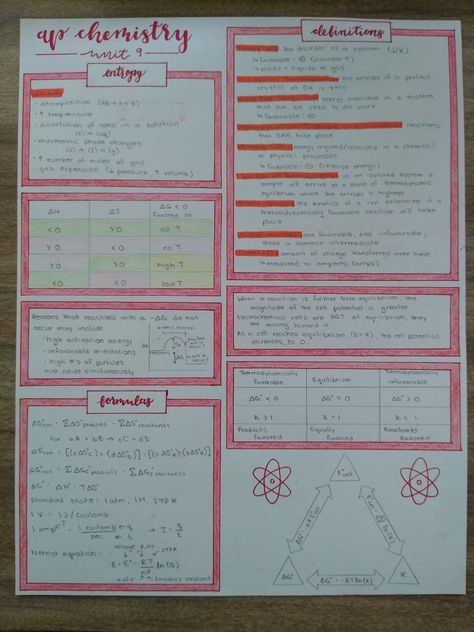 ap chemistry
unit 9
entropy
• decomposition (AB → A + B)
• ↑ temperature
• dissolution of ions in a solution
(s) → (aq)
• endothermic phase changes
(s) → (l) → (g)
• ↑ number of moles of gas
• gas expansion (↓ pressure ↑ volume)
ΔH ΔS ΔG < 0
favored at
< 0 > 0 all T
> 0 < 0 no T
> 0 > 0 high T
< 0 < 0 low T
Reasons that reactions with a -ΔG do not
occur may include
• high activation energy
• unfavorable orientations
• high #'s of particles
must collide simultaneously
formulas
ΔS°rxn = ΣΔS°products - ΣΔS°reactants
for aA + bB → cC + dD
ΔG°rxn = ΣΔG°products - ΣΔG°reactants
ΔG° = ΔH° - TΔS°
standard state: 1 atm, 1M, 298 K
1 V = 1 J/coulomb
1 amp = 1 coulomb / sec → I = q/t
Nernst equation:
E = E° - RT/nF ln(Q)
Faraday's constant
definitions
the disorder of a system (J/K)
↳ favorable: ⊕ (disorder ↑)
↳ solids < liquids < gas
the entropy of a perfect
crystal at 0K is zero
energy available in a system
that can be used to do work
↳ favorable: ⊖
reactions
that CAN take place
energy required/released in a chemical
or physical processes
↳ favorable: ⊖ (release energy)
in an isolated system a
sample will arrive at a state of thermodynamic
equilibrium where the entropy is highest
the kinetics of a rxn determine if a
thermodynamically favorable reaction will take
place
one favorable, one unfavorable;
share a common intermediate
amount of charge transferred over time
↳ measured in amperes (amps)
When a reaction is further from equilibrium, the
magnitude of the cell potential is greater
Electrochemical cells are NOT at equilibrium, they
are moving toward it
As a cell reaches equilibrium (Q = K), the cell potential
decreases to 0.
Thermodynamically Favorable Equilibrium Thermodynamically unfavorable
ΔG° < 0 ΔG° = 0 ΔG° > 0
K > 1 K = 1 K < 1
Products Favored Equally Favored Reactants Favored
E°cell
ΔG° = -nFE°cell
ΔG°
ΔG° = -RT ln(K)
K